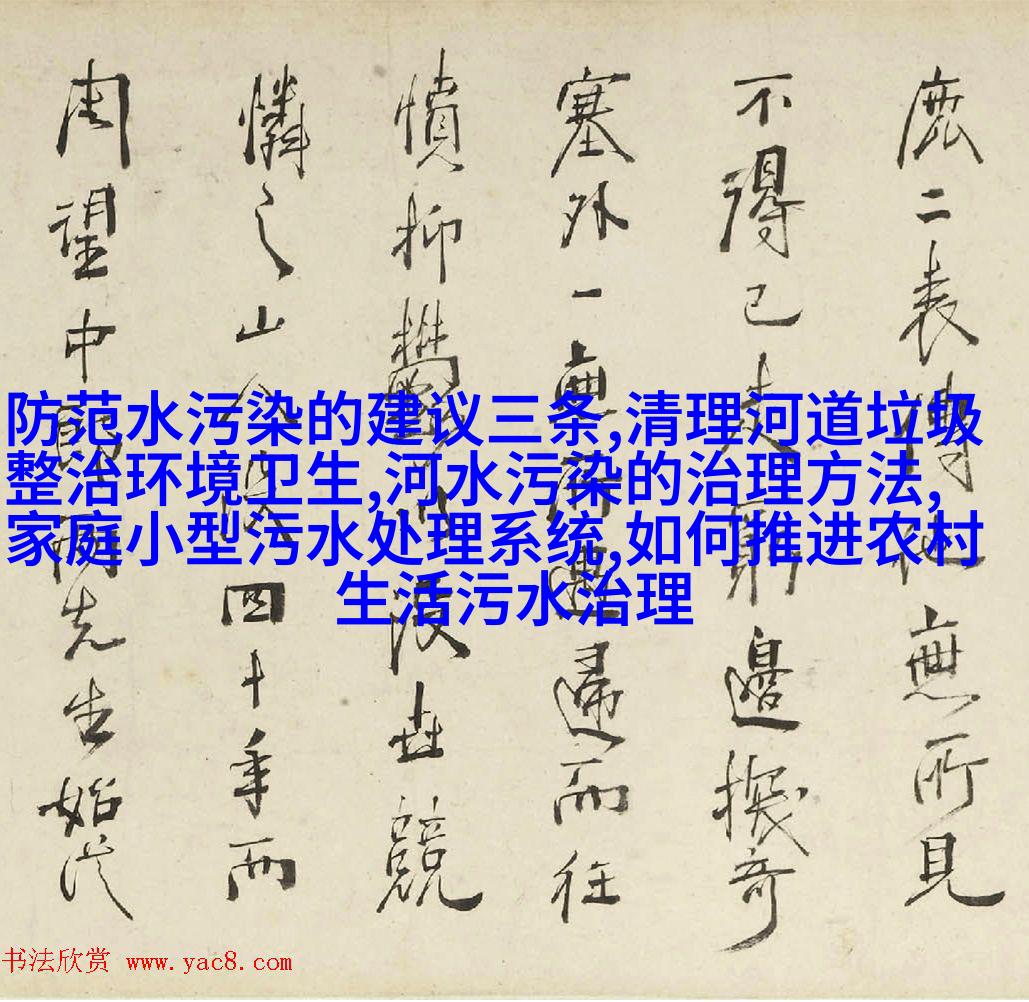 鹿二表無所見
不得已走邊探奇
塞外一無所遇歸而往
憤抑鬱世競
憐之山四十年而
周望中郎兩先生始從
防范水污染的建议三条,清理河道垃圾
整治环境卫生,河水污染的治理方法,
家庭小型污水处理系统,如何推进农村
生活污水治理
书法欣赏 www.yac8.com